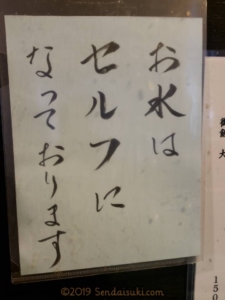 お水は
セルフに
なっております
大
150
©2019 Sendaisuki.com